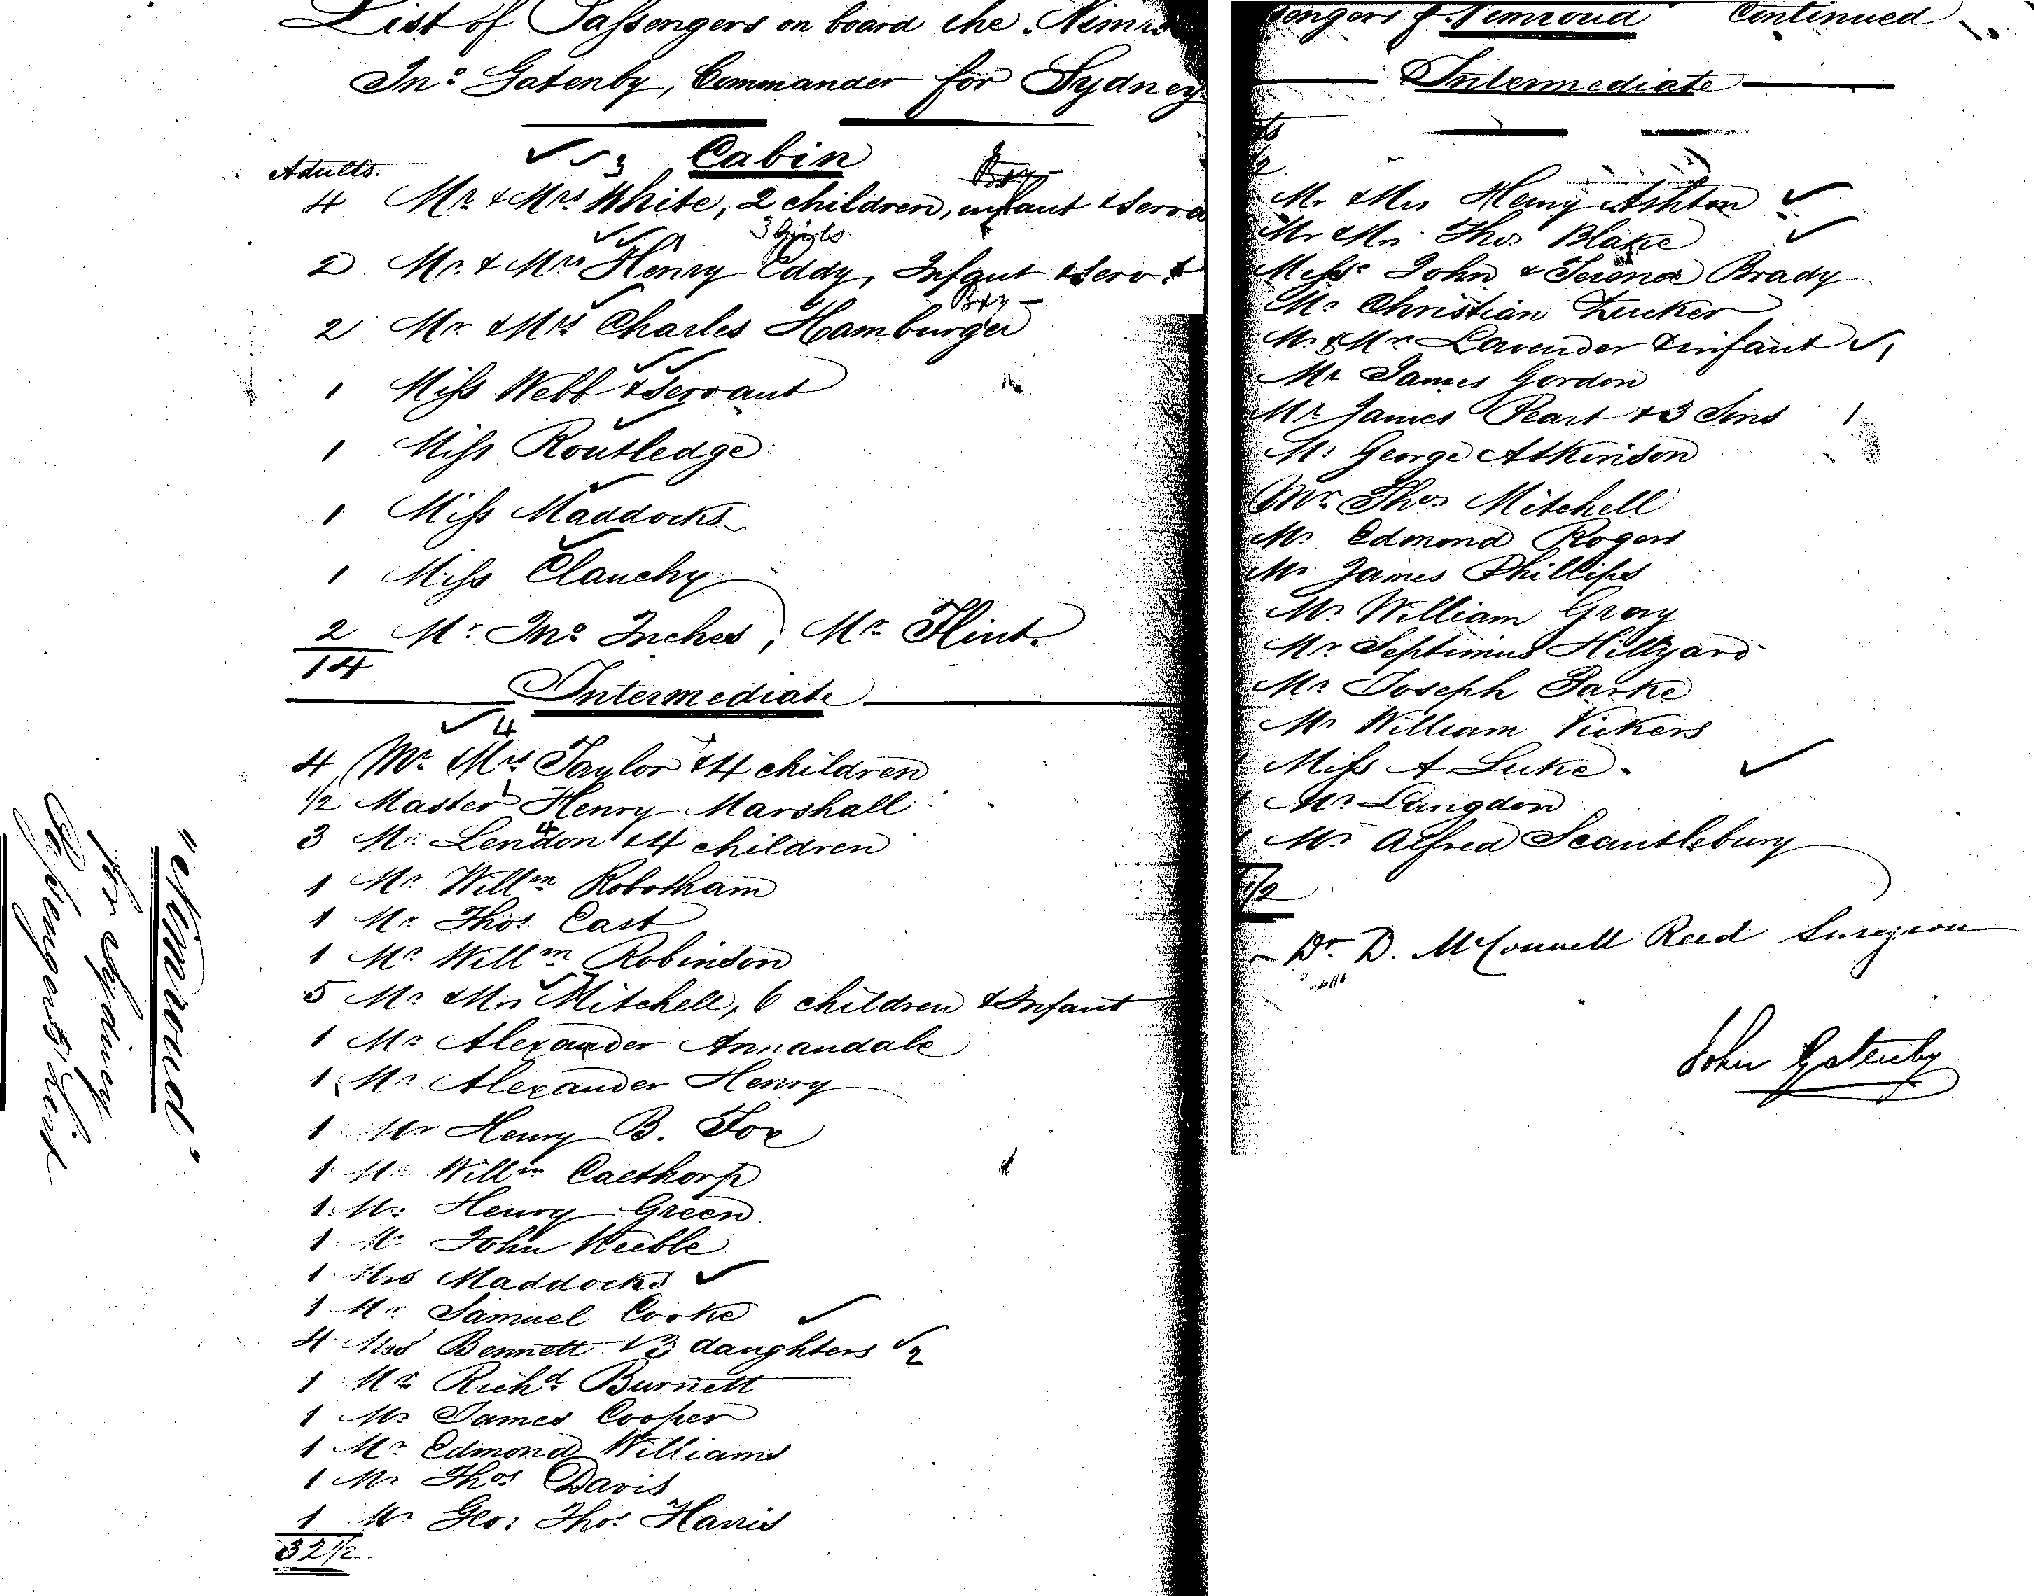 List of Passengers on board the Nimro
Jno. Gatenby, Commander for Sydney
Cabin
Adults.
4 Mr. & Mrs White, 2 children, infant & Serva
3 Girls
2 Mr. & Mrs Henry Eddy, Infant & Serv.t
Boy
2 Mr. & Mrs Charles Hamburger
1 Miss Webb & Servant
1 Miss Routledge
1 Miss Maddocks
1 Miss Clanchy
2 Mr. Jno Inches, Mr. Flint.
14
Intermediate
4
4 Mr. Mrs Taylor & 4 children
1/2 Master Henry Marshall
3 Mr. Lendon & 4 children
1 Mr. Willm Robotham
1 Mr. Thos. Cast
1 Mr. Willm Robinson
5 Mr. & Mrs Mitchell, 6 children & Infant
1 Mr. Alexander Annandale
1 Mr. Alexander Henry
1 Mr Henry B. Fox
1 Mr. Willm Caethorp
1 Mr. Henry Green
1 Mr John Keeble
1 Mrs Maddocks
1 Mr. Samuel Cooke
4 Mrs Bennett & 3 daughters 2
1 Mr. Richd. Burnett
1 Mr James Cooper
1 Mr. Edmond Williams
1 Mr Thos Davis
1 Mr Geo: Thos. Harris
32 1/2
"Nimroud"
for Sydney
Passengers List
sengers p. Nimroud Continued
Intermediate
Mr. & Mrs Henry Ashton
Mr Mrs. Thos Blake
Messrs John & Terence Brady
Mr Christian Zucker
Mr. & Mrs Lavender & infant 1
Mr James Gordon
Mr James Peart & 3 Sons
Mr George Atkinson
Mr. Thos Mitchell
Mr Edmond Rogers
Mr James Phillips
Mr William Gray
Mr. Septimus Hillyard
Mr Joseph Parke
Mr William Vickers
Miss A Luke.
Mr Langdon
Mr Alfred Scantlebury
1/2
Dr D. McConnell Reed Surgeon
John Gatenby